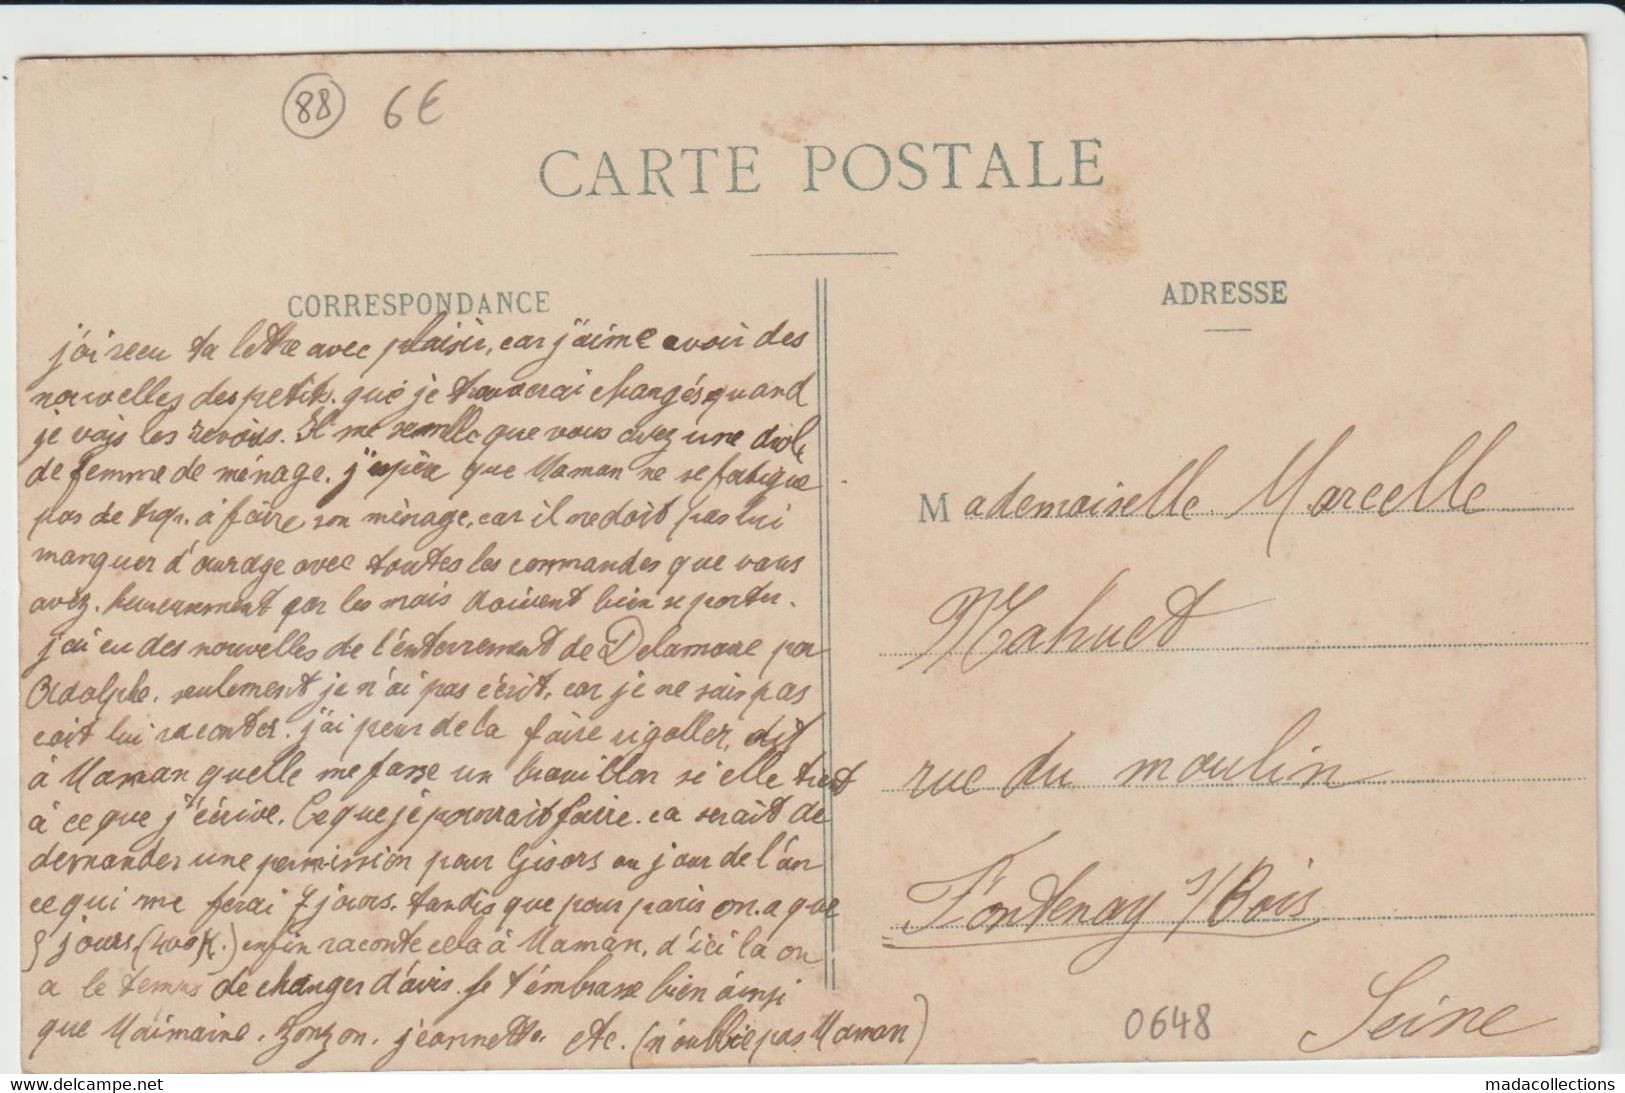 88 6€
CARTE POSTALE
CORRESPONDANCE
j'ai recu ta lettre avec plaisir, car j'aime avoir des
nouvelles des petits. que je trouverai changés quand
je vais les revoirs. Il me semble que vous avez une drole
de femme de ménage. j'espère que Maman ne se fatigue
pas de trop. à faire son ménage, car il ne doit pas lui
manquer d'ouvrage avec toutes les commandes que vous
avez. heureusement car les mois doivent bien se porter.
j'ai eu des nouvelles de l'enterrement de Delamare par
Adolphe. seulement je n'ai pas écrit, car je ne sais pas
coit lui raconter. j'ai peur de la faire rigoller, dit
à Maman quelle me fasse un brouillon si elle tient
à ce que j'écrive. Ce que je pourrait faire. ca serait de
demander une permission pour Gisors au jour de l'an
ce qui me ferai 7 jours. tandis que pour paris on. a que
jours. (400 K.) enfin raconte cela à Maman. d'ici la on
a le temps de changer d'avis. Je t'embrasse bien ainsi
que Maimaine. Zonzon. jeannette. etc. (n'oublie pas Maman)
ADRESSE
Mademoiselle. Marcelle
Mahuet
rue du moulin
Fontenay s/Bois
Seine
0648
delcampe.net
madacollections